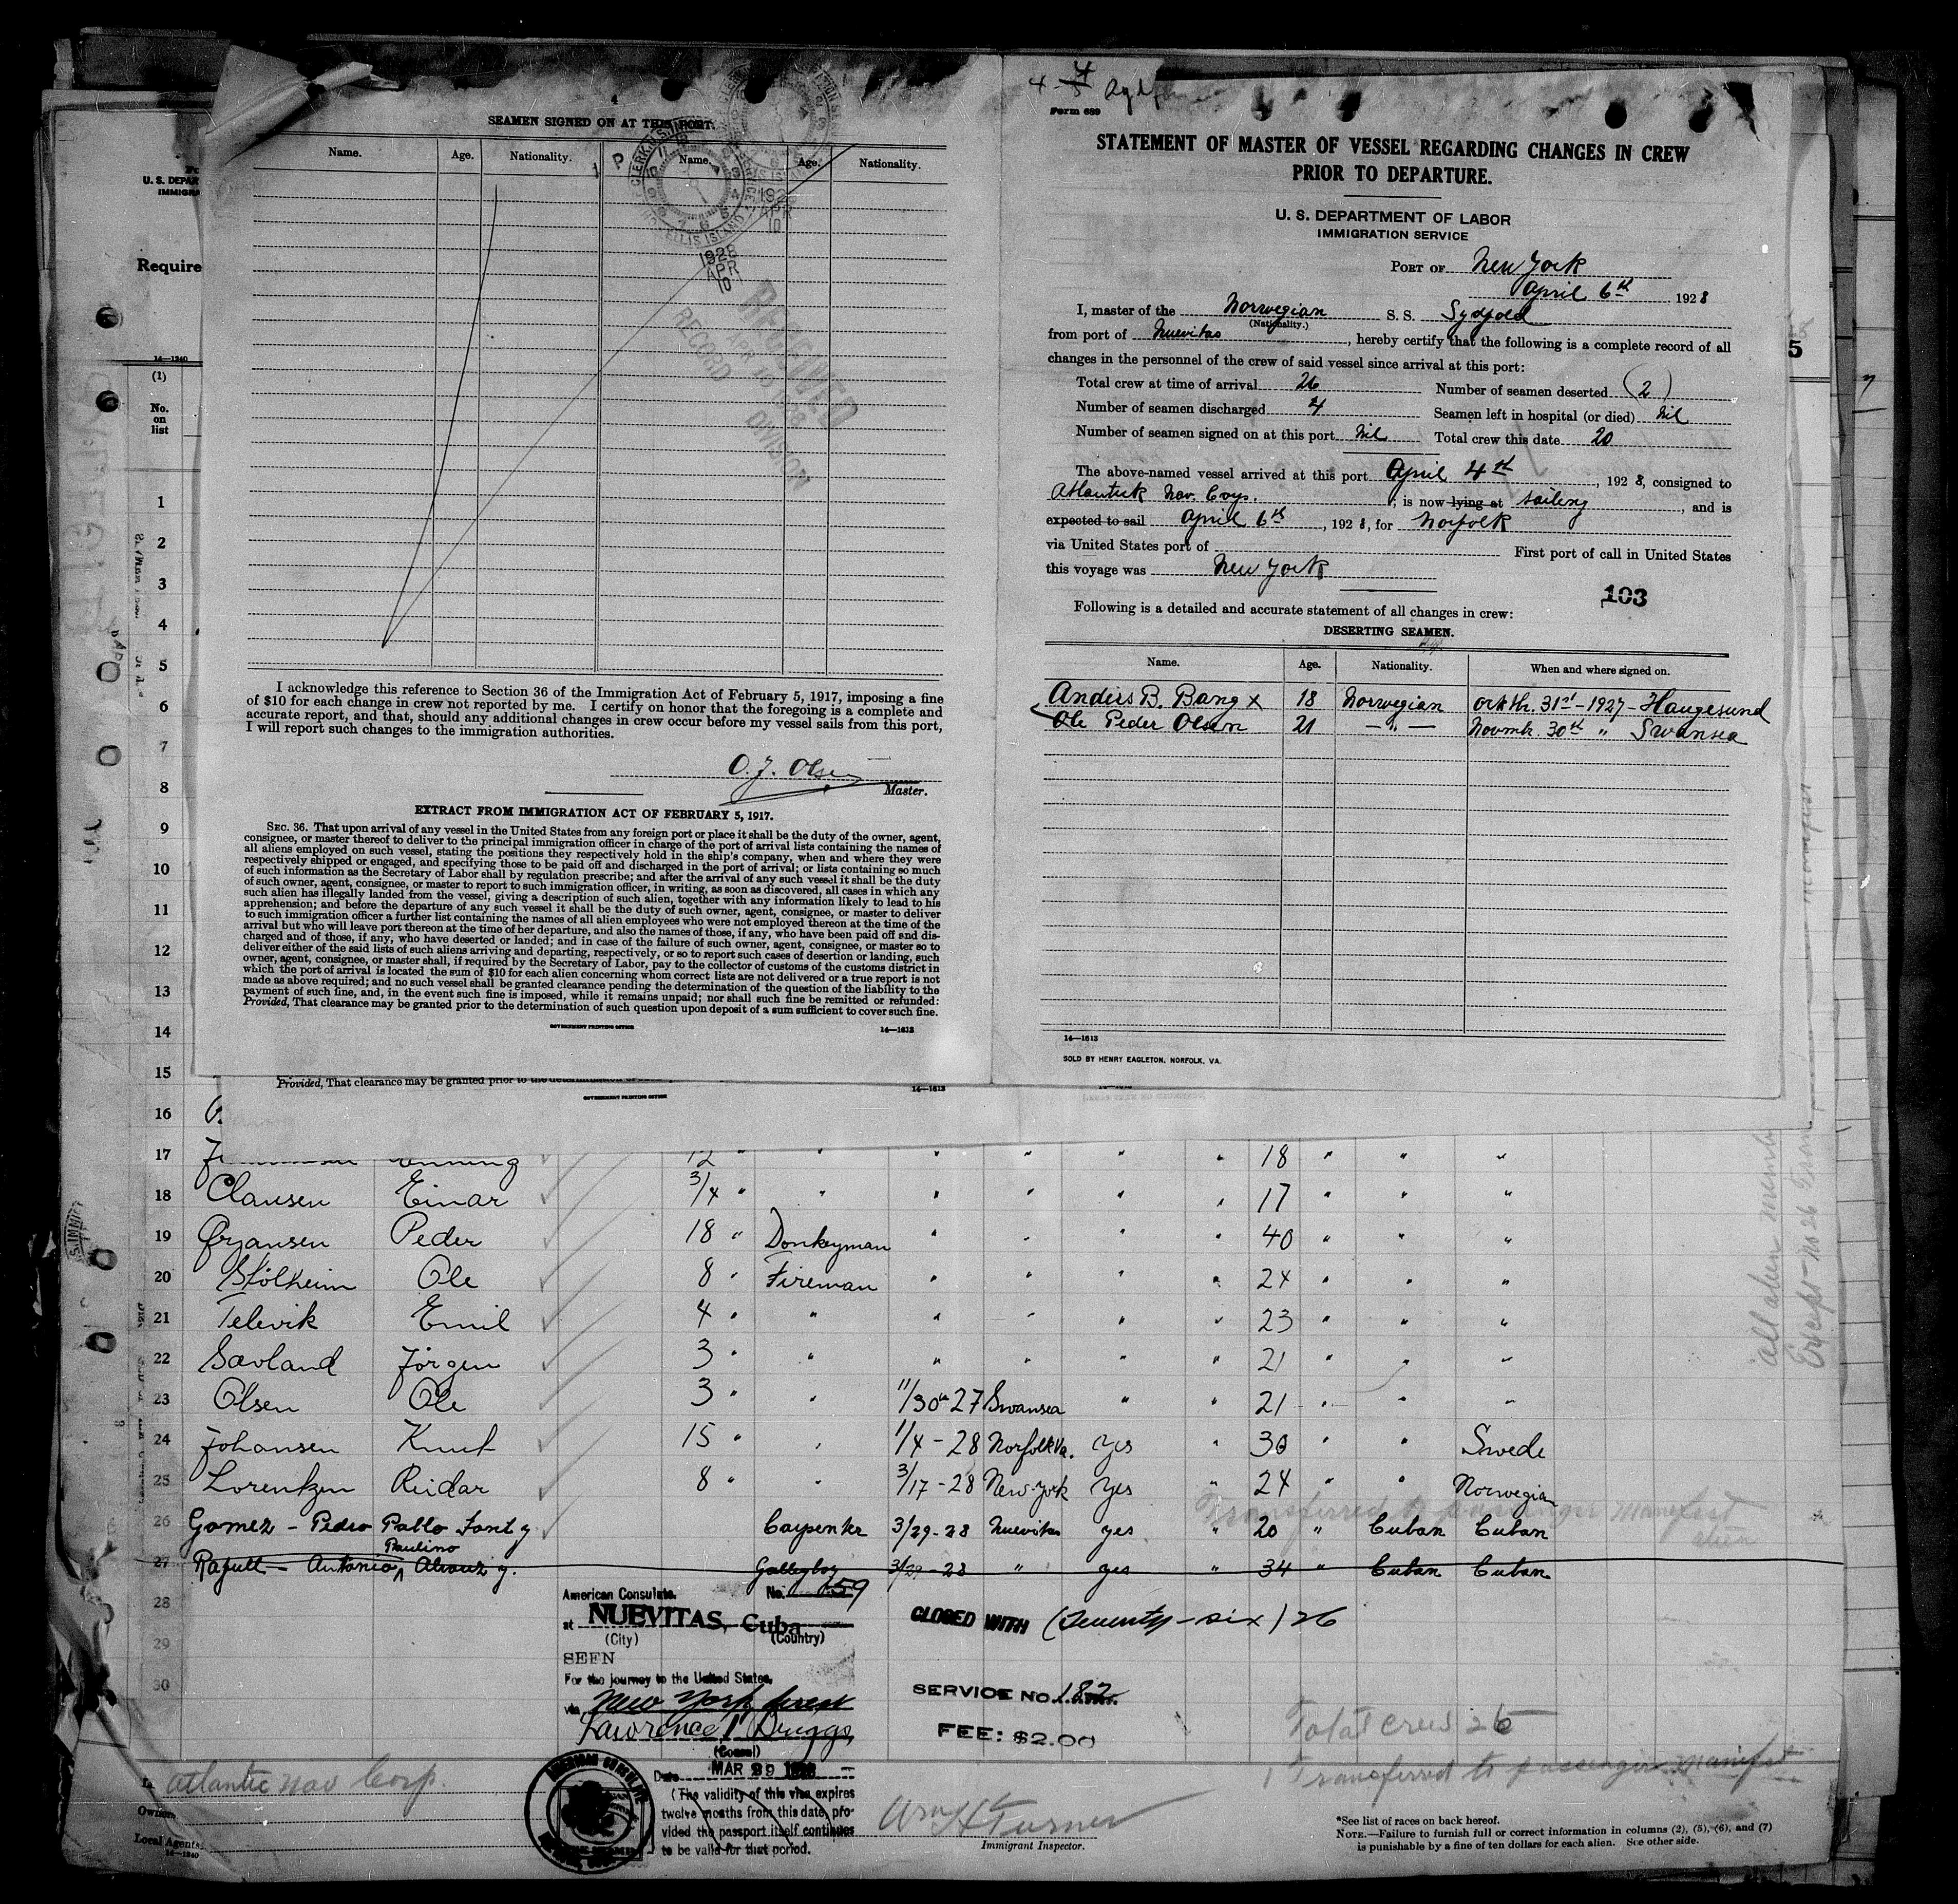 SEAMEN SIGNED ON AT THIS PORT.
Name. Age. Nationality. Name. Age. Nationality.
CLERK U.S. IMMIGRATION SERVICE ELLIS ISLAND
1928
APR
10
1928
APR
10
RECEIVED
APR 10 1928
RECORD DIVISION
I acknowledge this reference to Section 36 of the Immigration Act of February 5, 1917, imposing a fine
of $10 for each change in crew not reported by me. I certify on honor that the foregoing is a complete and
accurate report, and that, should any additional changes in crew occur before my vessel sails from this port,
I will report such changes to the immigration authorities.
O. J. Olsen
Master.
EXTRACT FROM IMMIGRATION ACT OF FEBRUARY 5, 1917.
SEC. 36. That upon arrival of any vessel in the United States from any foreign port or place it shall be the duty of the owner, agent,
consignee, or master thereof to deliver to the principal immigration officer in charge of the port of arrival lists containing the names of
all aliens employed on such vessel, stating the positions they respectively hold in the ship's company, when and where they were
respectively shipped or engaged, and specifying those to be paid off and discharged in the port of arrival; or lists containing so much
of such information as the Secretary of Labor shall by regulation prescribe; and after the arrival of any such vessel it shall be the duty
of such owner, agent, consignee, or master to report to such immigration officer, in writing, as soon as discovered, all cases in which any
such alien has illegally landed from the vessel, giving a description of such alien, together with any information likely to lead to his
apprehension; and before the departure of any such vessel it shall be the duty of such owner, agent, consignee, or master to deliver
to such immigration officer a further list containing the names of all alien employees who were not employed thereon at the time of the
arrival but who will leave port thereon at the time of her departure, and also the names of those, if any, who have been paid off and dis-
charged and of those, if any, who have deserted or landed; and in case of the failure of such owner, agent, consignee, or master so to
deliver either of the said lists of such aliens arriving and departing, respectively, or so to report such cases of desertion or landing, such
owner, agent, consignee, or master shall, if required by the Secretary of Labor, pay to the collector of customs of the customs district in
which the port of arrival is located the sum of $10 for each alien concerning whom correct lists are not delivered or a true report is not
made as above required; and no such vessel shall be granted clearance pending the determination of the question of the liability to the
payment of such fine, and, in the event such fine is imposed, while it remains unpaid; nor shall such fine be remitted or refunded:
Provided, That clearance may be granted prior to the determination of such question upon deposit of a sum sufficient to cover such fine.
GOVERNMENT PRINTING OFFICE 14—1613
Form 689
STATEMENT OF MASTER OF VESSEL REGARDING CHANGES IN CREW
PRIOR TO DEPARTURE.
U. S. DEPARTMENT OF LABOR
IMMIGRATION SERVICE
PORT OF New York
April 6th 1928
I, master of the Norwegian S. S. Sydfold
(Nationality.)
from port of Nuevitas, hereby certify that the following is a complete record of all
changes in the personnel of the crew of said vessel since arrival at this port:
Total crew at time of arrival 26 Number of seamen deserted (2)
Number of seamen discharged 4 Seamen left in hospital (or died) Nil
Number of seamen signed on at this port Nil Total crew this date 20
The above-named vessel arrived at this port April 4th, 1928, consigned to
Atlantick Nav. Corps.; is now lying at sailing, and is
expected to sail April 6th, 1928, for Norfolk
via United States port of First port of call in United States
this voyage was New York
103
Following is a detailed and accurate statement of all changes in crew:
DESERTING SEAMEN.
Name. Age. Nationality. When and where signed on.
Anders B. Bang x 18 Norwegian Oktbr. 31st - 1927 - Haugesund
Ole Peder Olsen 21 — " — Novmb. 30th " Swansea
14—1613
SOLD BY HENRY EAGLETON, NORFOLK, VA.
U. S. DEPAR
IMMIGRA
Require
14—1240
(1)
No.
on
list
5
1
2
3
4
5
6
7
8
9
10
11
12
13
14
15
Provided, That clearance may be granted prior to the
GOVERNMENT PRINTING OFFICE 14—1613
16
17 12 " " " " " 18 " " "
18 Clausen Einar 3/4 " " " " " " 17 " " "
19 Ørjansen Peder 18 " Donkeyman " " " " 40 " " "
20 Stölheim Ole 8 " Fireman " " " " 24 " " "
21 Televik Emil 4 " " " " " " 23 " " "
22 Savland Jörgen 3 " " " " " " 21 " " "
23 Olsen Ole 3 " " 11/30th 27 Swansea " " 21 " " "
24 Johansen Knut 15 " " 1/4 - 28 Norfolk Va. Yes " 30 " " Swede
25 Lorentzen Reidar 8 " " 3/17 - 28 New-York Yes " 24 " " Norwegian
Transferred to passenger manifest
alien
26 Gomez - Pedro Pablo Font y. Carpenter 3/29-28 Nuevitas yes " 20 " Cuban Cuban
Paulino
27 Rafull - Antonio Alvarez y. Galleyboy 3/29-28 " yes " 34 " Cuban Cuban
28
29
30
American Consulate. No. 659
at NUEVITAS, Cuba
(City) (Country)
SEEN
For the journey to the United States,
via New York direct
(Consul)
Date MAR 29 1928
(The validity of this visa expires
twelve months from this date, pro-
vided the passport itself continues
to be valid for that period.
CLOSED WITH (Twenty-six) 26
SERVICE NO. 182
FEE: $2.00
Total crew 26
1 Transferred to passenger manifest
Atlantic Nav Corp.
Owners
Local Agents
14—1240
Wm H Turner
Immigrant Inspector.
*See list of races on back hereof.
NOTE.—Failure to furnish full or correct information in columns (2), (5), (6), and (7)
is punishable by a fine of ten dollars for each alien. See other side.
all alien memb
Except - no 26 Tran